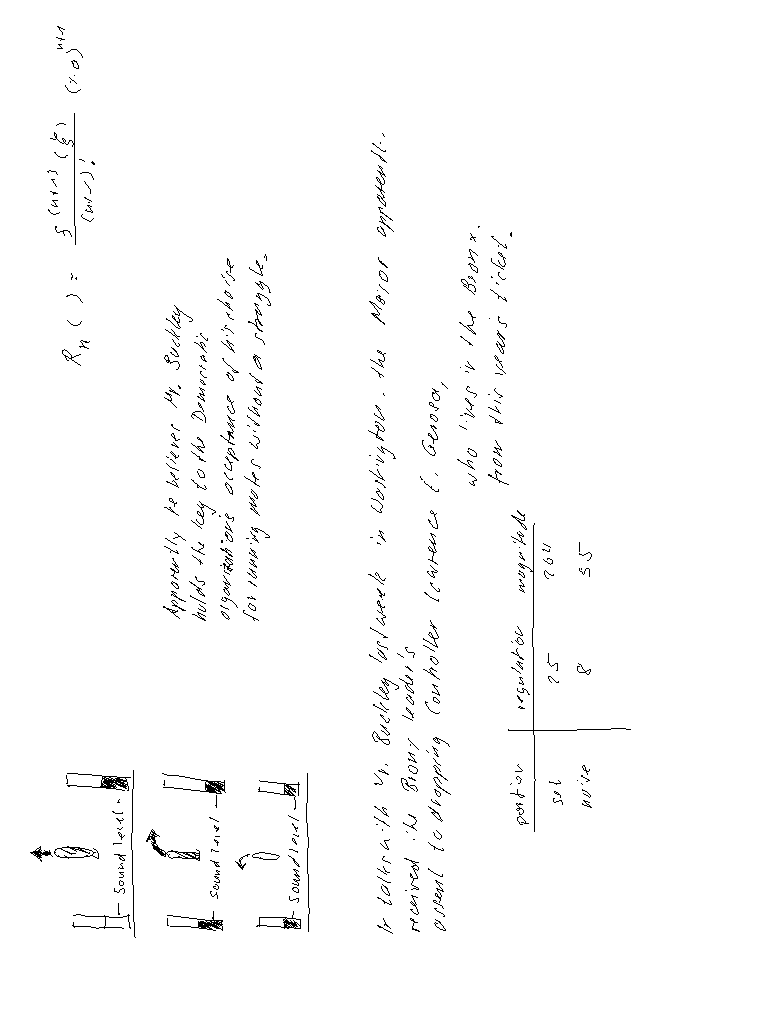 R_n ( ) = \frac{f^{(n+1)} (ξ)}{(n+1)!} (x-a)^{n+1}
Apparently he believes Mr. Buckley
holds the key to the Democratic
organization's acceptance of his choise
for running mates without a struggle.
Sound level
Sound level
Sound level
In talks with Mr. Buckley last week in Washington, the Mayor apparently
received the Bronx leader's
assent to dropping Controller Lawrence E. Gerosa,
who lives in the Bronx.
from this years ticket.
portion regulation magnitude
set 25 264
noise 8 35